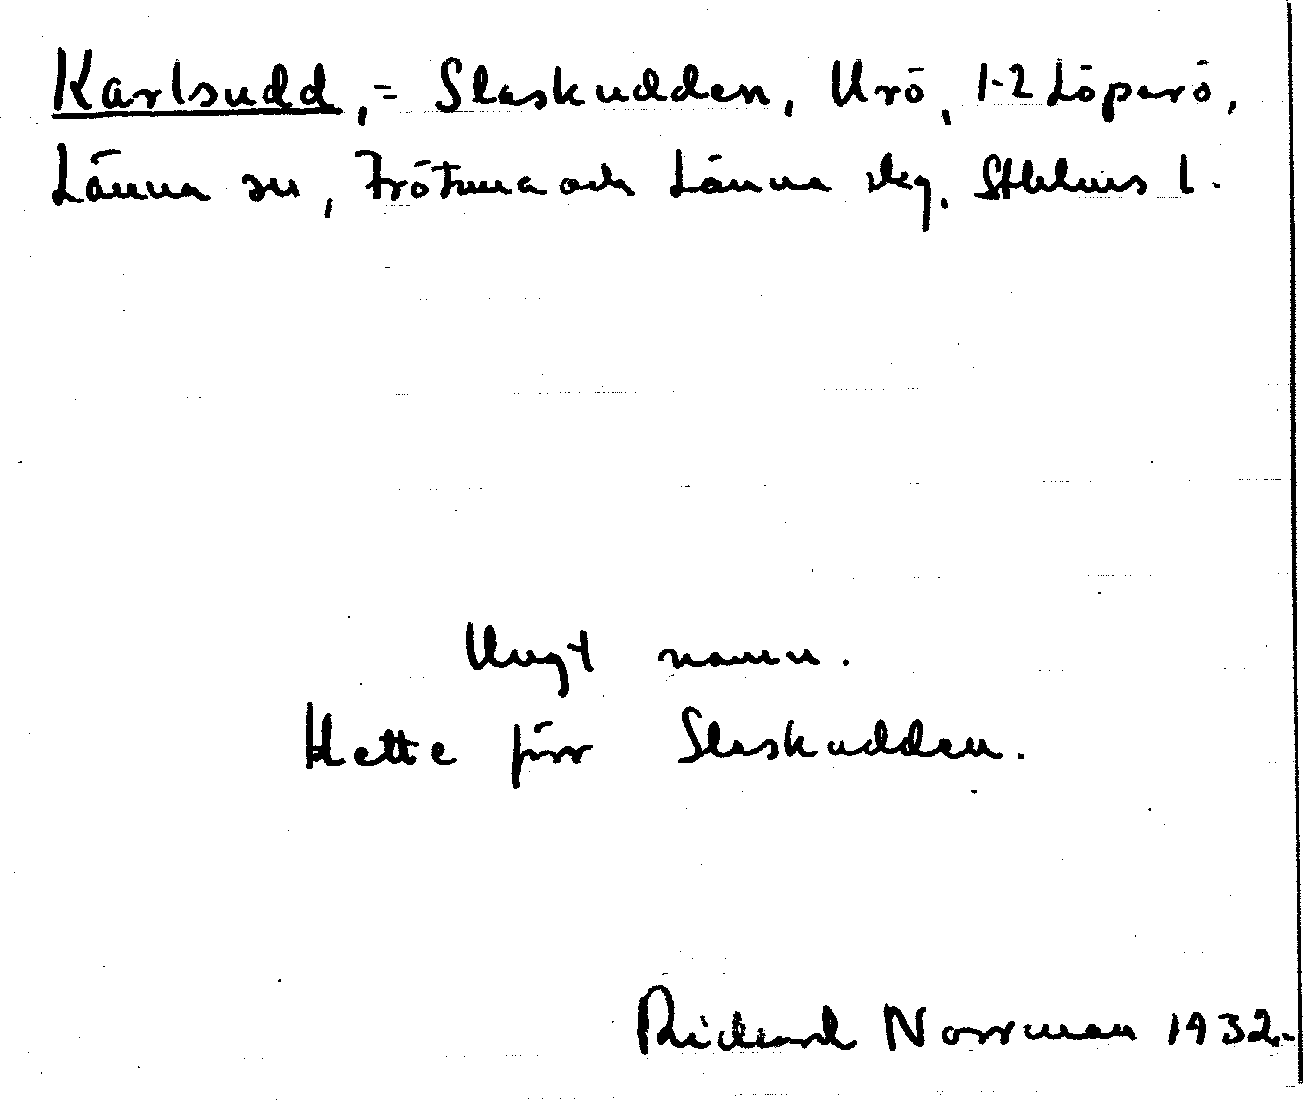 Karlsudd, = Slaskudden, Urö, 1-2 Löparö,
Länna sn, Frötuna och Länna skg. Sthlms l.
Ungt namn.
Hette förr Slaskudden.
Rickard Norrman 1932.-